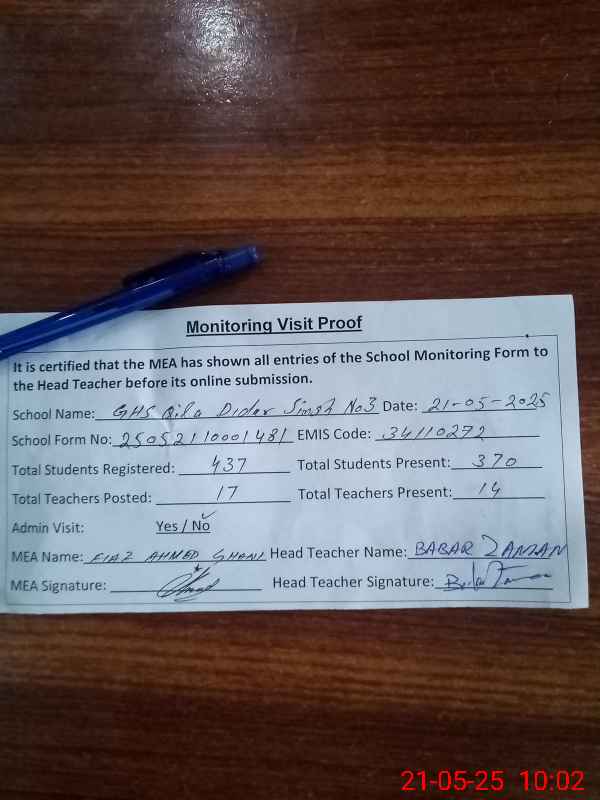 Monitoring Visit Proof
It is certified that the MEA has shown all entries of the School Monitoring Form to
the Head Teacher before its online submission.
School Name: GHS Qila Didar Singh No3 Date: 21-05-2025
School Form No: 25052110001481 EMIS Code: 34110272
Total Students Registered: 437 Total Students Present: 370
Total Teachers Posted: 17 Total Teachers Present: 14
Admin Visit: Yes / No
MEA Name: FIAZ AHMED GHANI Head Teacher Name: BABAR ZAMAN
MEA Signature: Head Teacher Signature:
21-05-25 10:02